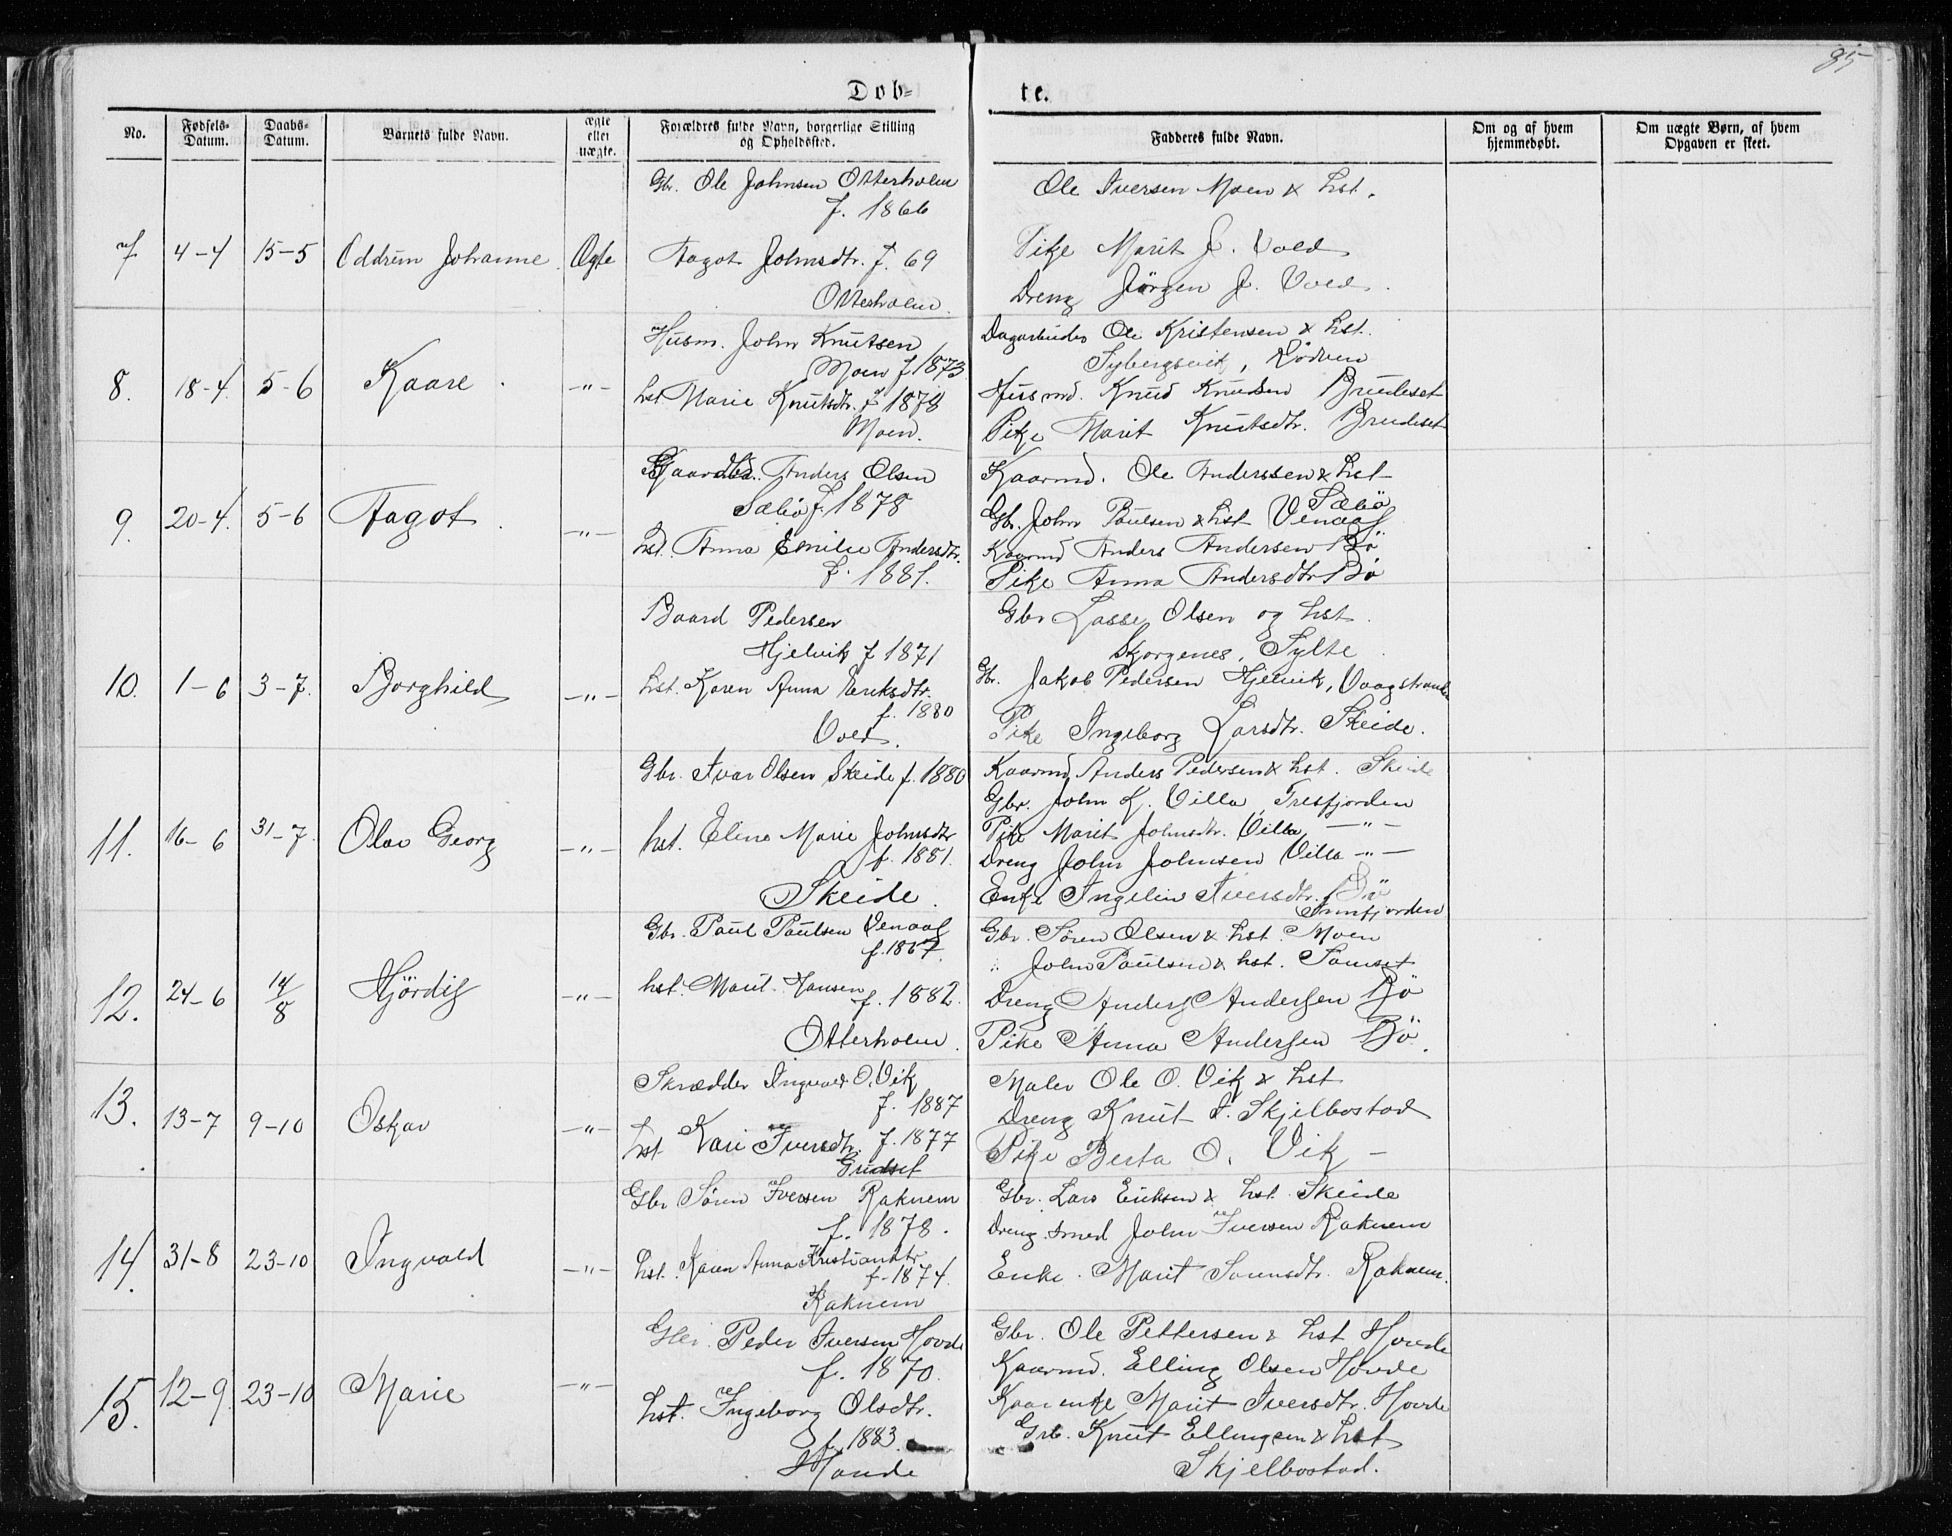 85
Döb-
te.
No.
Fødsels-Datum.
Daabs-Datum.
Barnets fulde Navn.
ægte eller uægte.
Forældres fulde Navn, borgerlige Stilling og Opholdssted.
Fadderes fulde Navn.
Om og af hvem hjemmedøbt.
Om uægte Børn, af hvem Opgaven er skeet.
7 4-4 15-5 Oddrun Johanne. Ogte
Gbr. Ole Johnsen Otterholm
f. 1866
Aagot Johnsdtr. f. 69
Otterholm.
Ole Iversen Moen & hst.
Pike Marit J. Vold
Dreng Jörgen J. Vold.
8. 18-4. 5-6 Kaare. -"-
Husm. John Knutsen
Moen f 1873
hst Marie Knutsdtr. f 1878
Moen.
Dagarbeider Ole Kristensen & hst.
Sybergsvik, Rödven
Husmd. Knud Knudsen Brudeset
Pike Marit Knutsdtr. Brudeset
9. 20-4. 5-6 Aagot. -"-
Gaardbr. Anders Olsen
Sæbö f. 1878
hst. Anna Emilie Andersdtr.
f. 1881.
Kaarmd. Ole Anderssen & hst
Sæbö
Gbr. John Paulsen & hst Venaas.
Kaarmd Anders Andersen Bö
Pike Anna Andersdtr Bö
10. 1-6 3-7. Borghild -"-
Baard Pedersen
Hjelvik f 1871
hst. Karen Anna Eriksdtr.
f. 1880
Vold.
Gbr Lasse Olsen og hst.
Skorgenes, Sylte.
Gbr. Jakob Pedersen Hjelvik, Vaagstranden
Pike Ingeborg Larsdtr. Skeide.
11. 16-6 31-7. Olav Georg -"-
Gbr. Ivar Olsen Skeide f. 1880
hst. Eline Marie Johnsdtr
f. 1881.
Skeide.
Kaarmd Anders Pedersen & hst. Skeide
Gbr. John L. Villa, Tresfjorden
Pike Marit Johnsdtr. Villa -"-
Dreng John Johnsen Villa -"-
Enke Ingelin Iversdtr. Bö
Innfjorden
12. 24-6 14/8 Hjördis -"-
Gbr. Paul Paulsen Venaas
f. 1867.
hst. Marit Hansen
f. 1882.
Otterholm.
Gbr. Sören Olsen & hst. Moen
" John Paulsen & hst. Somset
Dreng Anders Andersen Bö
Pike Anna Andersen Bö.
13. 13-7 9-10 Oskar -"-
Skrædder Ingvald O. Vik
f. 1887
hst Kari Iversdtr. f. 1877
Gridset
Maler Ole O. Vik & hst
Dreng Knut I. Skjelbostad
Pike Berta O. Vik -
14. 31-8 23-10 Ingvald -"-
Gbr Sören Iversen Raknem
f. 1878.
hst. Karen Anna Kristiansdtr.
f. 1874.
Raknem
Gbr. Lars Eriksen & hst Skeide
Dreng Smed John Iversen Raknem
Enke. Marit Sorensdtr. Raknem.
15. 12-9. 23-10 Marie -"-
Gbr. Peder Iversen Hovde
f. 1870.
hst. Ingeborg Olsdtr.
f. 1883.
Hovde
Gbr. Ole Pettersen & hst Hovde
Kaarmd. Elling Olsen Hovde
Kaarenke Marit Iversdtr. Hovde
Grb. Knut Ellingsen & hst
Skjelbostad.